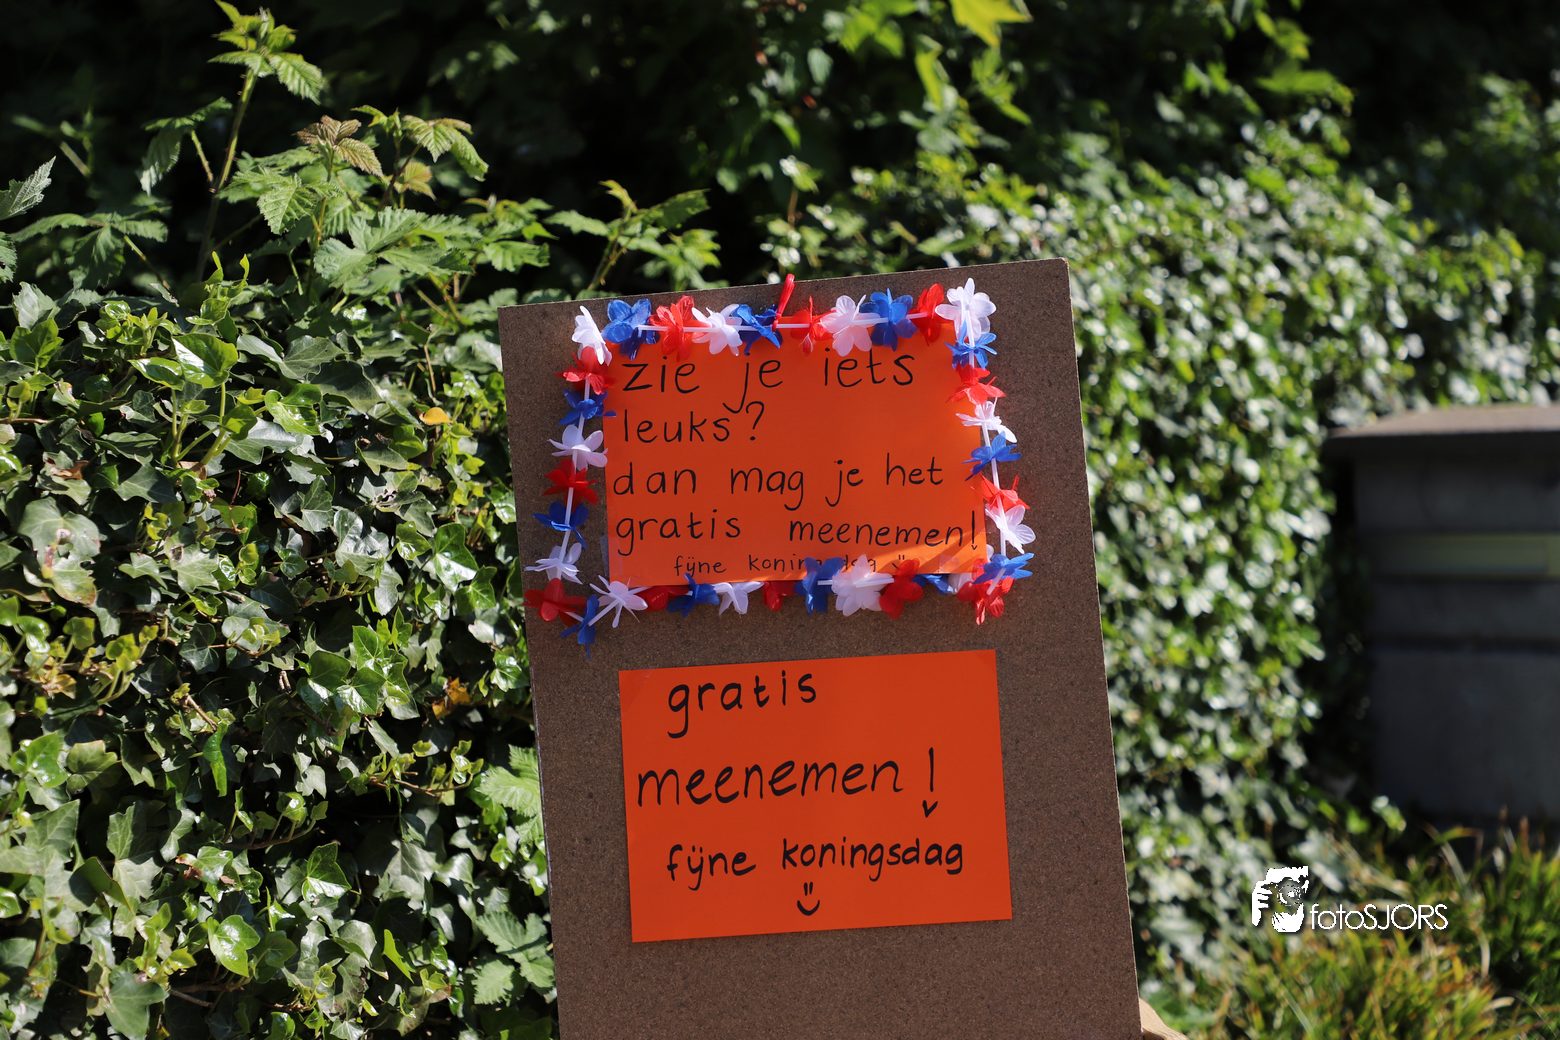 zie je iets
leuks?
dan mag je het
gratis meenemen!
fÿne koningsdag
gratis
meenemen!
fÿne koningsdag
fotoSJORS